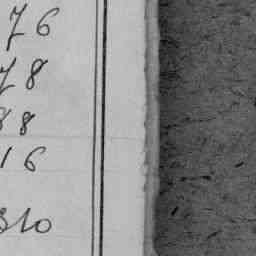 76
78
88
16
310